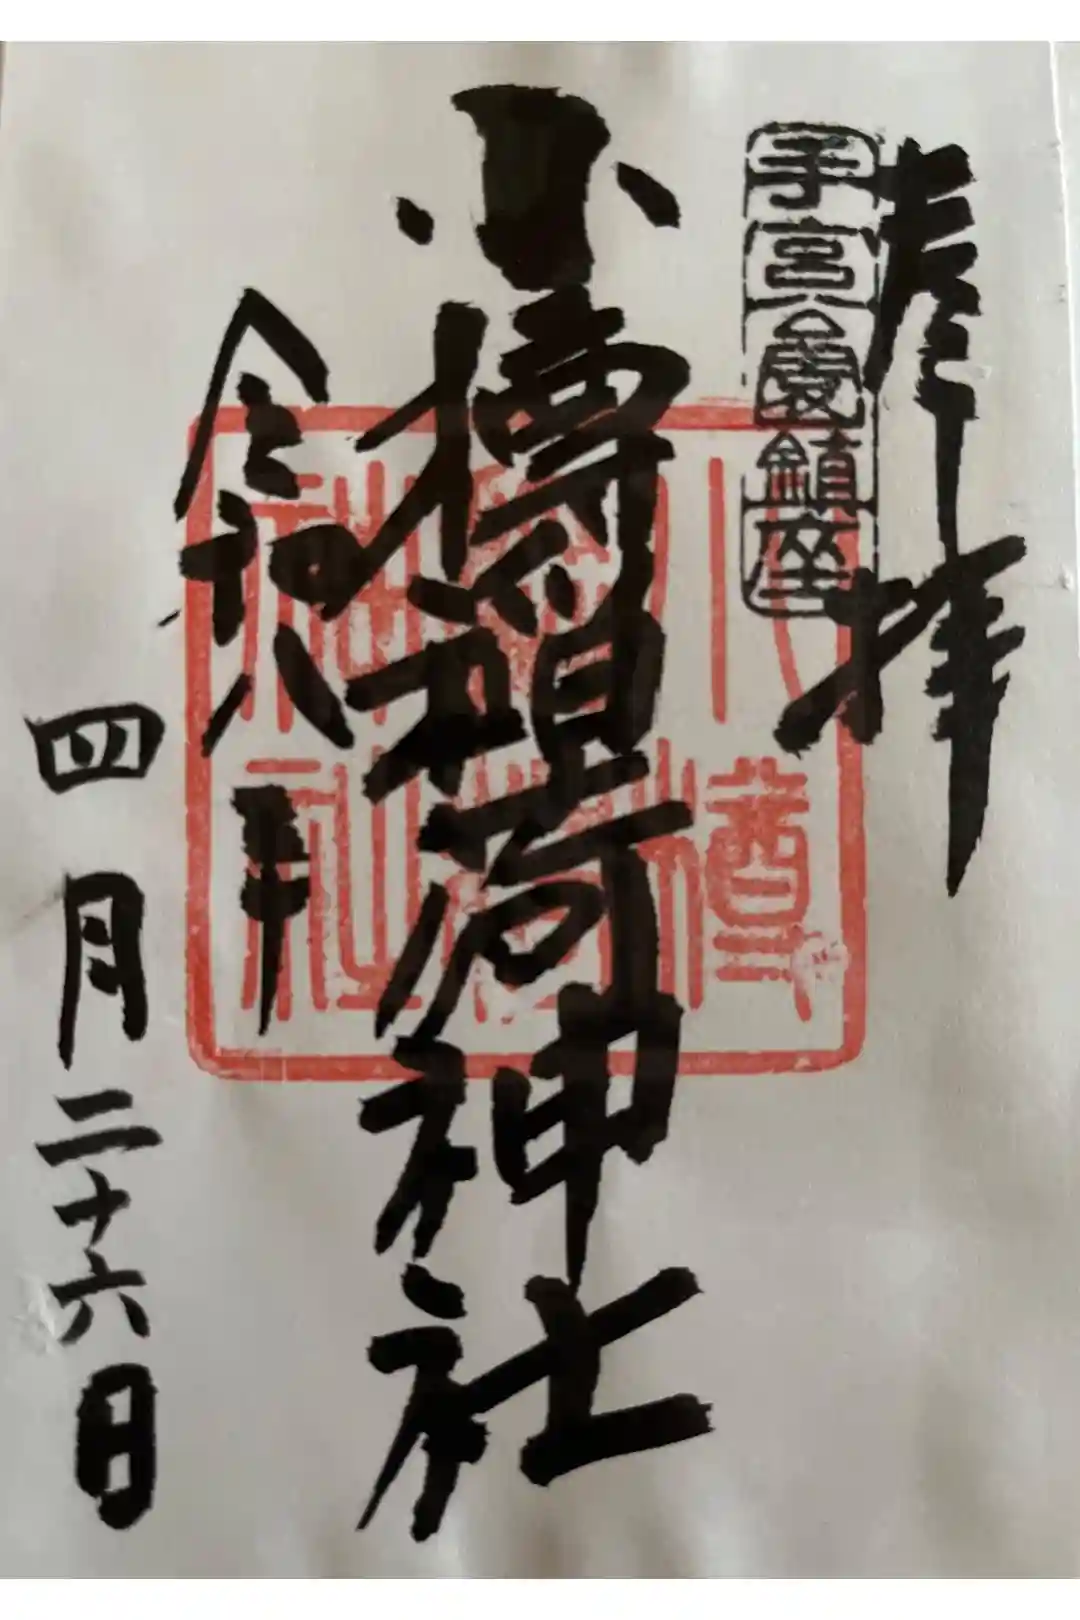 奉拝
手宮
鎮座
小樽稲荷神社
小樽
神社
令和八年
四月二十六日